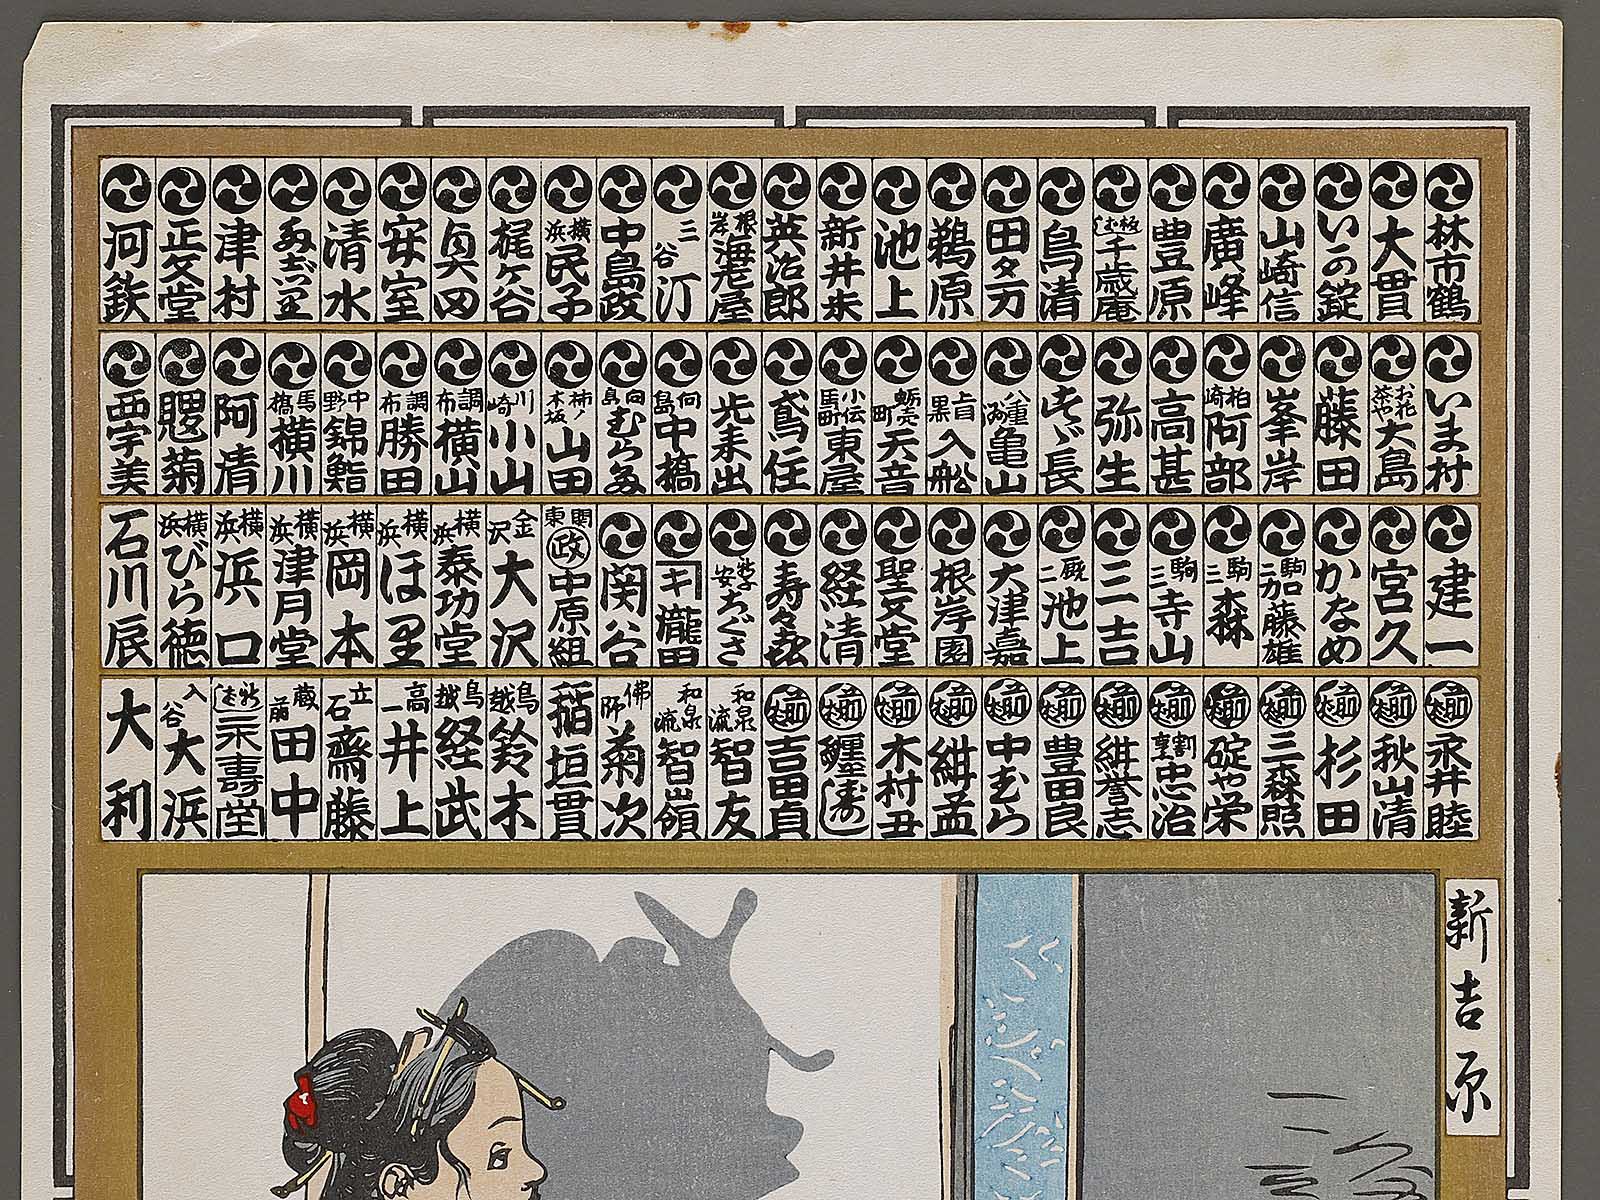 林市鶴
大貫
いの錠
山崎信
廣峰
豊原
千歳庵
鳥清
田タ万
鵜原
池上
新井末
英治郎
根岸 海老屋
三谷 汀
中島政
横浜 民子
梶ケ谷
貞四
安室
清水
津村
正文堂
河鉄
いま村
お花茶や 大島
藤田
峯岸
柏崎 阿部
高甚
弥生
八重洲 亀山
目黒 入舩
蛎売町 天音
小伝馬町 東屋
鳶住
光来出
向島 中橋
向島 むら多
柿ノ木坂 山田
川崎 小山
調布 横山
調布 勝田
中野 錦鮨
馬橋 横川
阿清
西宇美
建一
宮久
かなめ
駒二 加藤雄
駒三 森
駒三 寺山
三吉
厩二 池上
大津嘉
根岸園
聖文堂
経清
寿々喜
ちぐさ
キ 瀧田
関谷
関東 政 中原組
金沢 大沢
横浜 泰功堂
横浜 ほ里
横浜 岡本
横浜 津月堂
横浜 浜口
横浜 びら徳
石川辰
永井睦
秋山清
杉田
三森照
碇や栄
割烹 忠治
紺誉志
豊田良
中むら
紺孟
木村丑
吉田貞
和泉流 智友
和泉流 智嶺
佛師 菊次
稲垣貫
鳥越 鈴木
鳥越 経武
高一 井上
立石 齋藤
蔵前 田中
永壽堂
入谷 大浜
大利
新吉原